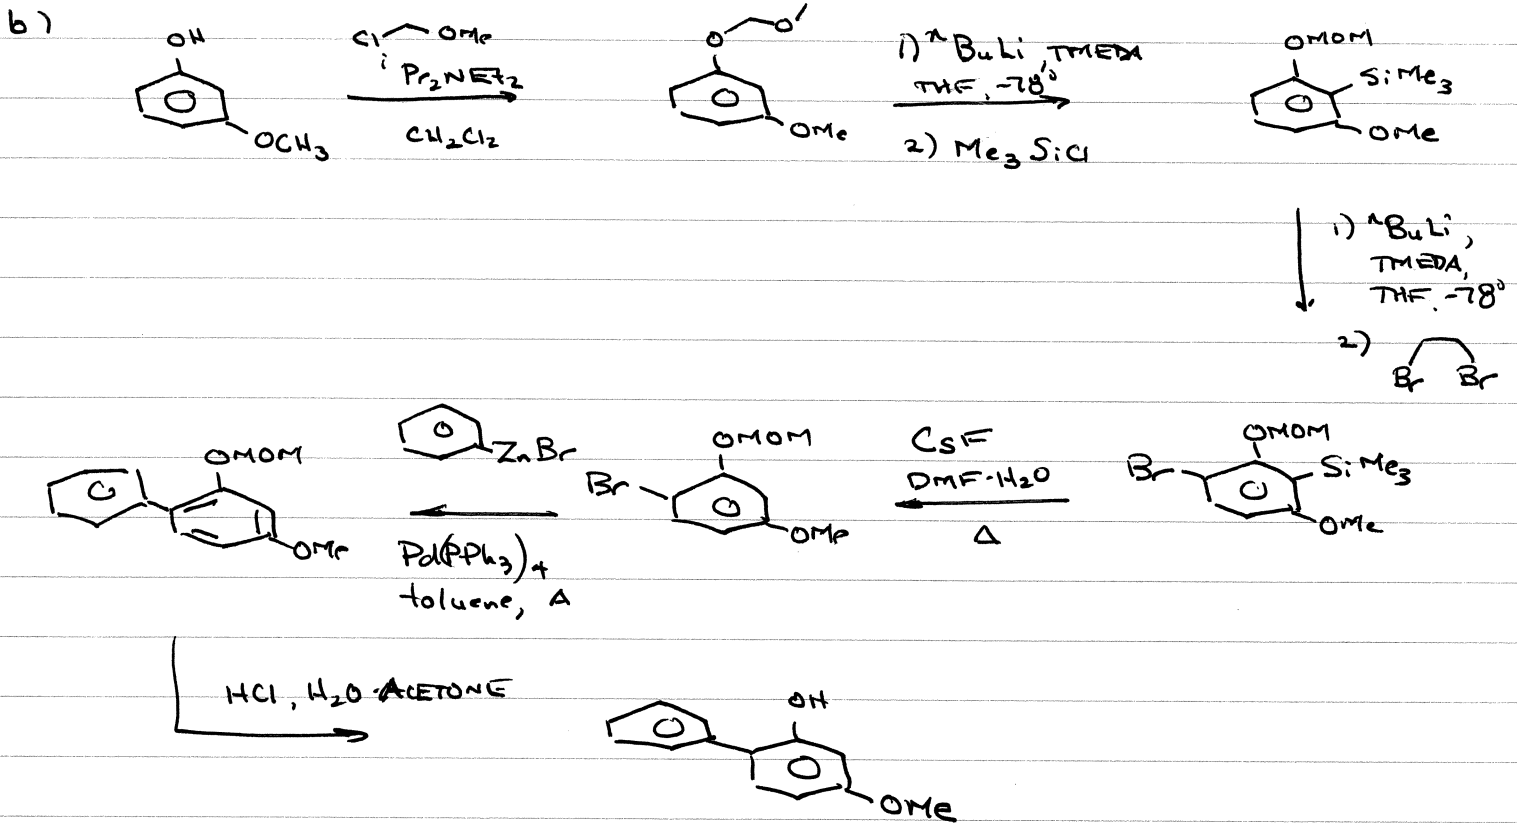 b)
OH
OCH3
Cl OMe
iPr2NEt2
CH2Cl2
O O
OMe
1) nBuLi, TMEDA
THF, -78°
2) Me3SiCl
OMOM
SiMe3
OMe
1) nBuLi,
TMEDA,
THF, -78°
2)
Br Br
OMOM
Br SiMe3
OMe
CsF
DMF·H2O
Δ
OMOM
Br
OMe
ZnBr
Pd(PPh3)4
toluene, Δ
OMOM
OMe
HCl, H2O·ACETONE
OH
OMe